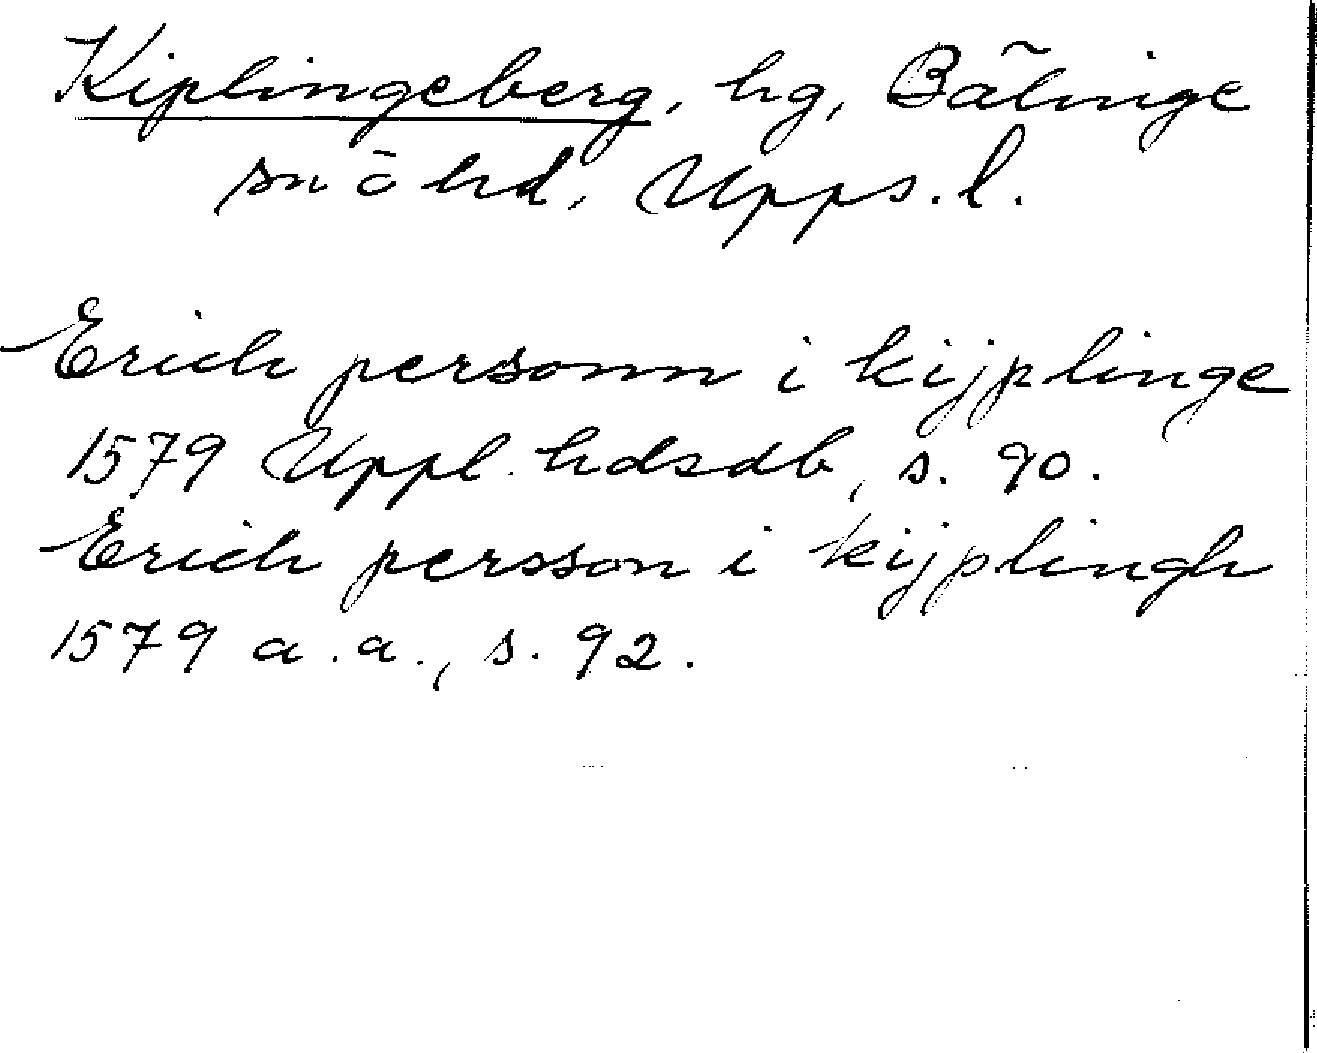 Kiplingeberg, hg, Bälinge
sn ö hd, Upps. l.
Erich personn i kijplinge
1579 Uppl. hdsdb, s. 90.
Erich persson i kijplingh
1579 a. a., s. 92.